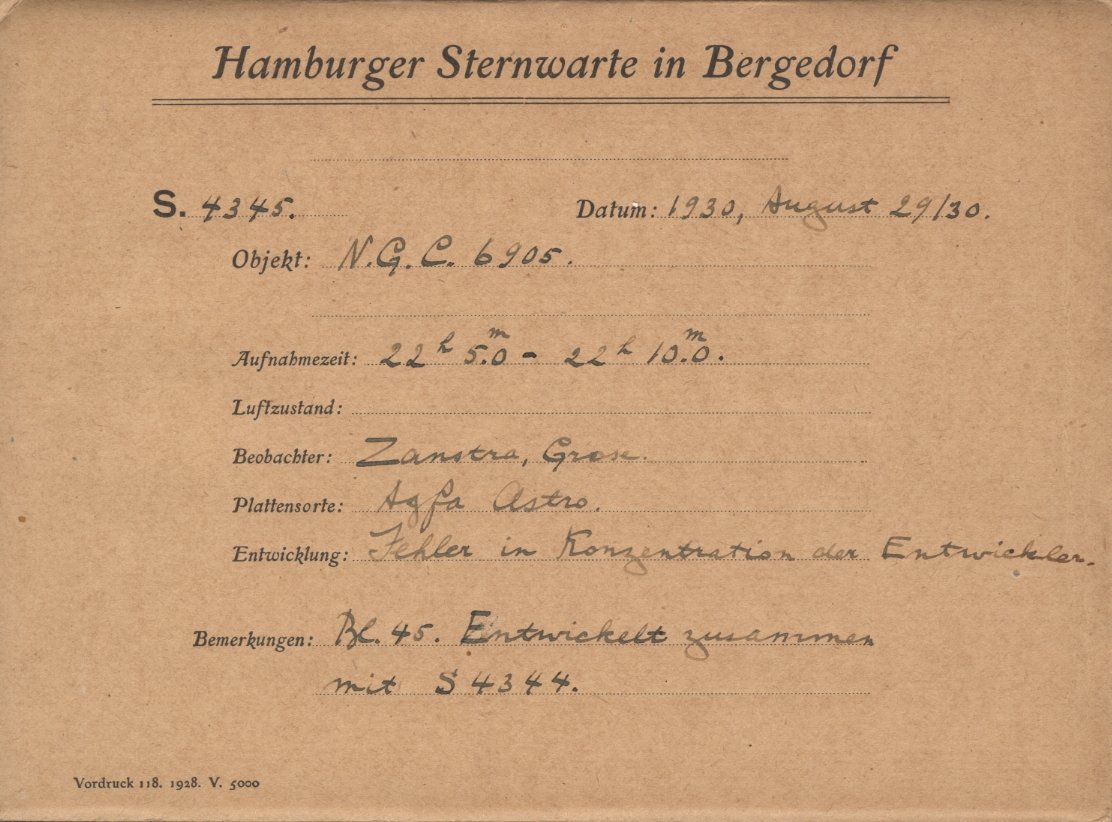 Hamburger Sternwarte in Bergedorf
S. 4345. Datum: 1930, August 29/30.
Objekt: N.G.C. 6905.
Aufnahmezeit: 22h 5.m0 - 22h 10.m0.
Luftzustand:
Beobachter: Zanstra,
Plattensorte: Agfa Astro.
Entwicklung: Fehler in Konzentration der Entwickler.
Bemerkungen: Bl. 45. Entwickelt zusammen
mit S 4344.
Vordruck 118. 1928. V. 5000